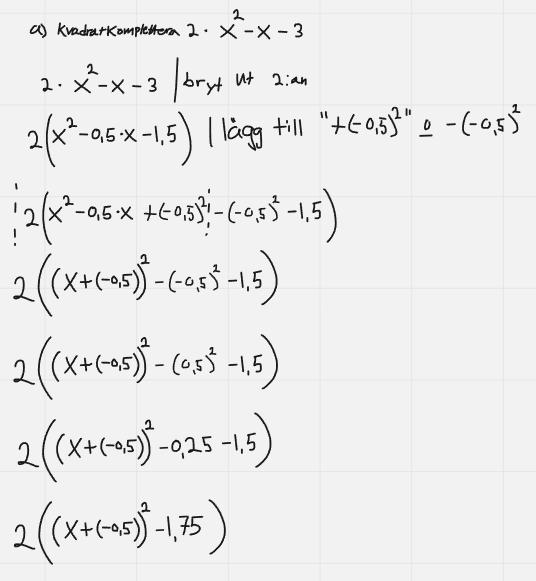 a) Kvadratkomplettera 2 · x² - x - 3
2 · x² - x - 3 | bryt ut 2:an
2(x² - 0,5 · x - 1,5) | lägg till "+(-0,5)²" o - (-0,5)²
2(x² - 0,5 · x + (-0,5)² - (-0,5)² - 1,5)
2((x + (-0,5))² - (-0,5)² - 1,5)
2((x + (-0,5))² - (0,5)² - 1,5)
2((x + (-0,5))² - 0,25 - 1,5)
2((x + (-0,5))² - 1,75)